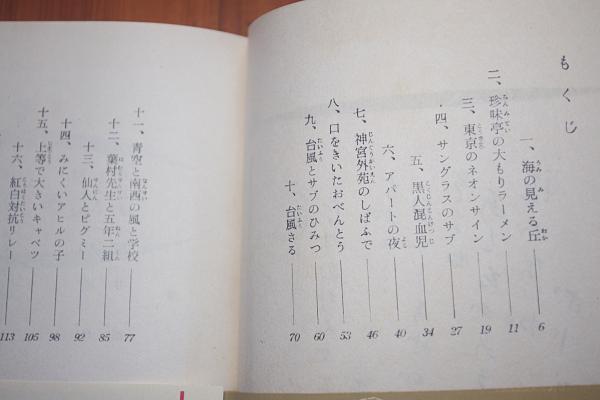 もくじ
一、海の見える丘 6
二、珍味亭の大もりラーメン 11
三、東京のネオンサイン 19
四、サングラスのサブ 27
五、黒人混血児 34
六、アパートの夜 40
七、神宮外苑のしばふで 46
八、口をきいたおべんとう 53
九、台風とサブのひみつ 60
十、台風さる 70
十一、青空と南西の風と学校 77
十二、葉村先生と五年二組 85
十三、仙人とピグミー 92
十四、みにくいアヒルの子 98
十五、上等で大きいキャベツ 105
十六、紅白対抗リレー 113